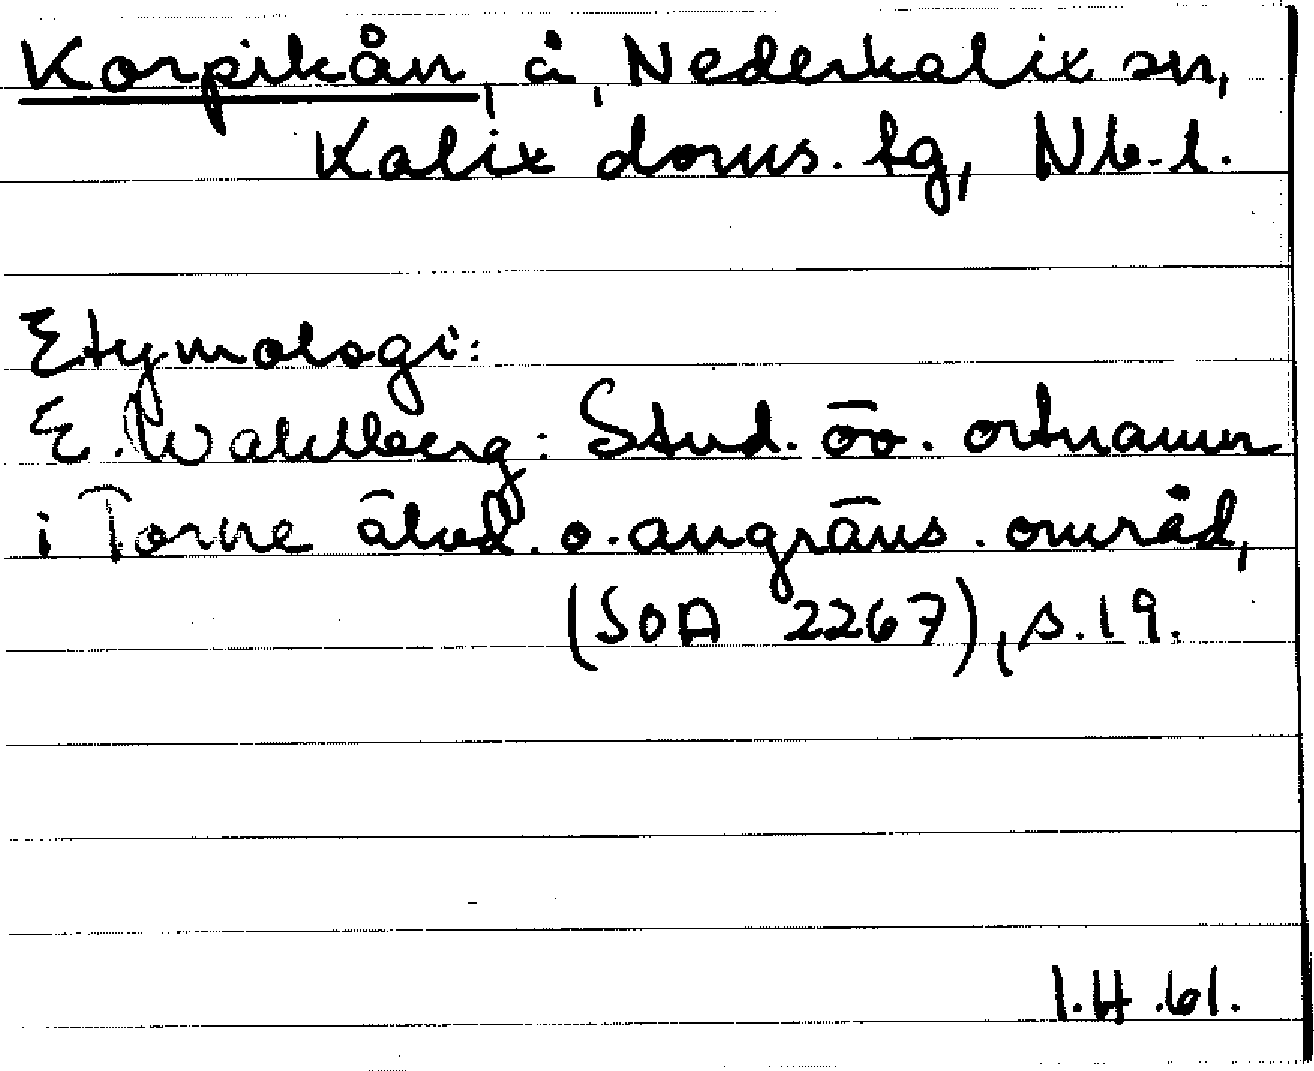 Korpikån, å, Nederkalix sn,
Kalix doms. tg, Nb. l.
Etymologi:
E. Wahlberg: Stud. öv. ortnamn
i Torne älvd. o. angräns. områd,
(SOA 2267), s. 19.
I.H. 61.